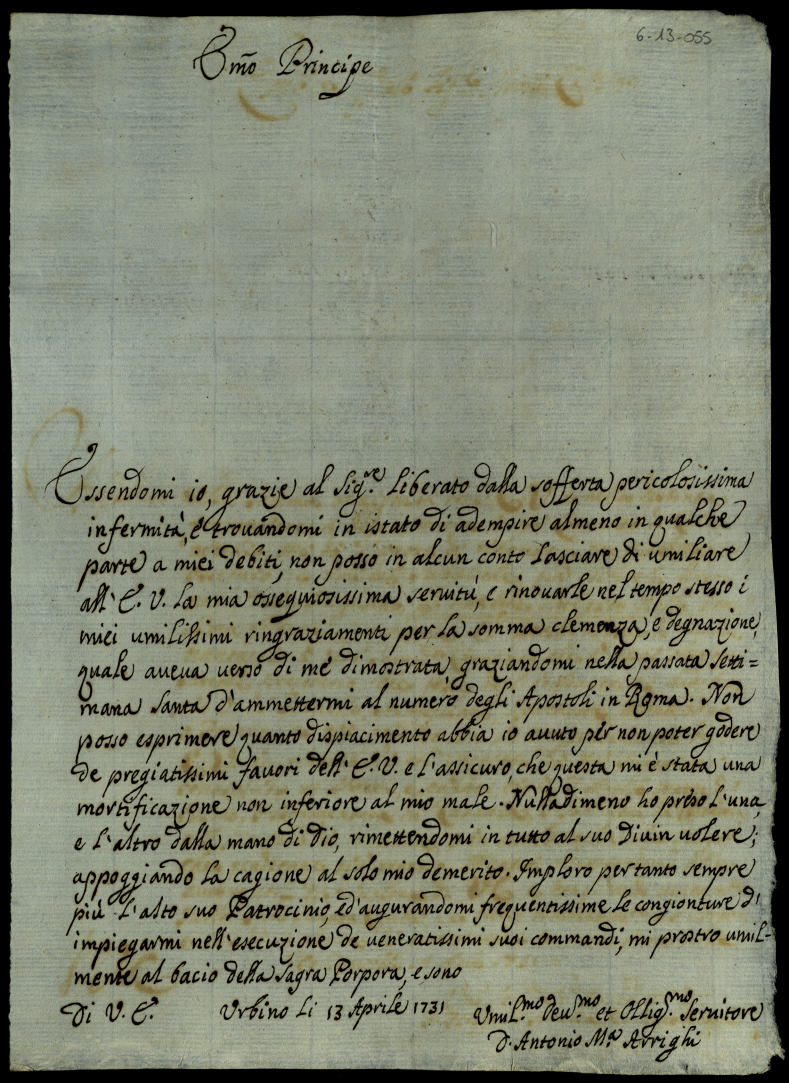 6-13-055
Emo Principe
Essendomi io, grazie al Sig.re liberato dalla sofferta pericolosissima
infermità, e trovandomi in istato di adempire almeno in qualche
parte a miei debiti, non posso in alcun conto lasciare di umiliare
all'E. V. la mia ossequiosissima servitù, e rinovarle nel tempo stesso i
miei umilissimi ringraziamenti per la somma clemenza, e degnazione,
quale aveva verso di me dimostrata, graziandomi nella passata Setti=
mana Santa d'ammettermi al numero degli Apostoli in Roma. Non
posso esprimere quanto dispiacimento abbia io avuto per non poter godere
de pregiatissimi favori dell'E. V. e l'assicuro, che questa mi è stata una
mortificazione non inferiore al mio male. Nulladimeno ho preso l'una,
e l'altro dalla mano di Dio, rimettendomi in tutto al suo Divin volere;
appoggiando la cagione al solo mio demerito. Imploro per tanto sempre
più l'alto suo Patrocinio, ed'augurandomi frequentissime le congionture d'
impiegarmi nell'esecuzione de veneratissimi suoi commandi, mi prostro umil-
mente al bacio della Sagra Porpora, e sono
Di V. E. Urbino li 13 Aprile 1731 Umil.mo Deu.mo et Oblig.mo Servitore
D. Antonio M.a Arrighi